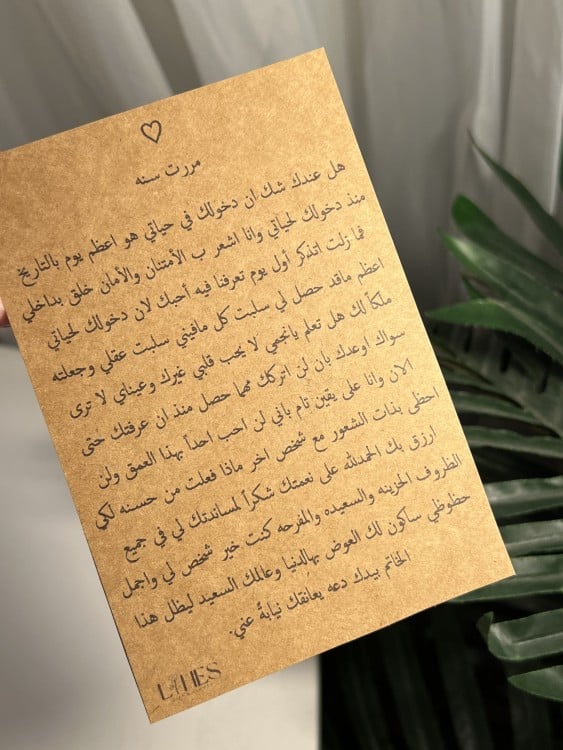 مررت سنه
هل عندك شك ان دخولك في حياتي هو اعظم يوم بالتاريخ
منذ دخولك لحياتي وانا اشعر ب الأمتنان والأمان خلق بداخلي
فما زلت اتذكر أول يوم تعرفنا فيه أحبك لان دخولك لحياتي
اعظم ماقد حصل لي سلبت كل مافيني سلبت عقلي وجعلته
ملكاً لك هل تعلم يانجمي لا يحب قلبي غيرك وعيناي لا ترى
سواك اوعدك بان لن اتركك مهما حصل منذ ان عرفتك حتى
الان وانا على يقين تام باني لن احب احداً بهذا العمق ولن
احظى بذات الشعور مع شخص اخر ماذا فعلت من حسنه لكي
ارزق بك الحمدلله على نعمتك شكراً لمساندتك لي في جميع
الظروف الحزينه والسعيده والمفرحه كنت خير شخص لي واجمل
حظوظي ساكون لك العوض بهالدنيا وعالمك السعيد ليظل هذا
الخاتم بيدك دعه يعانقك نيابةً عني.